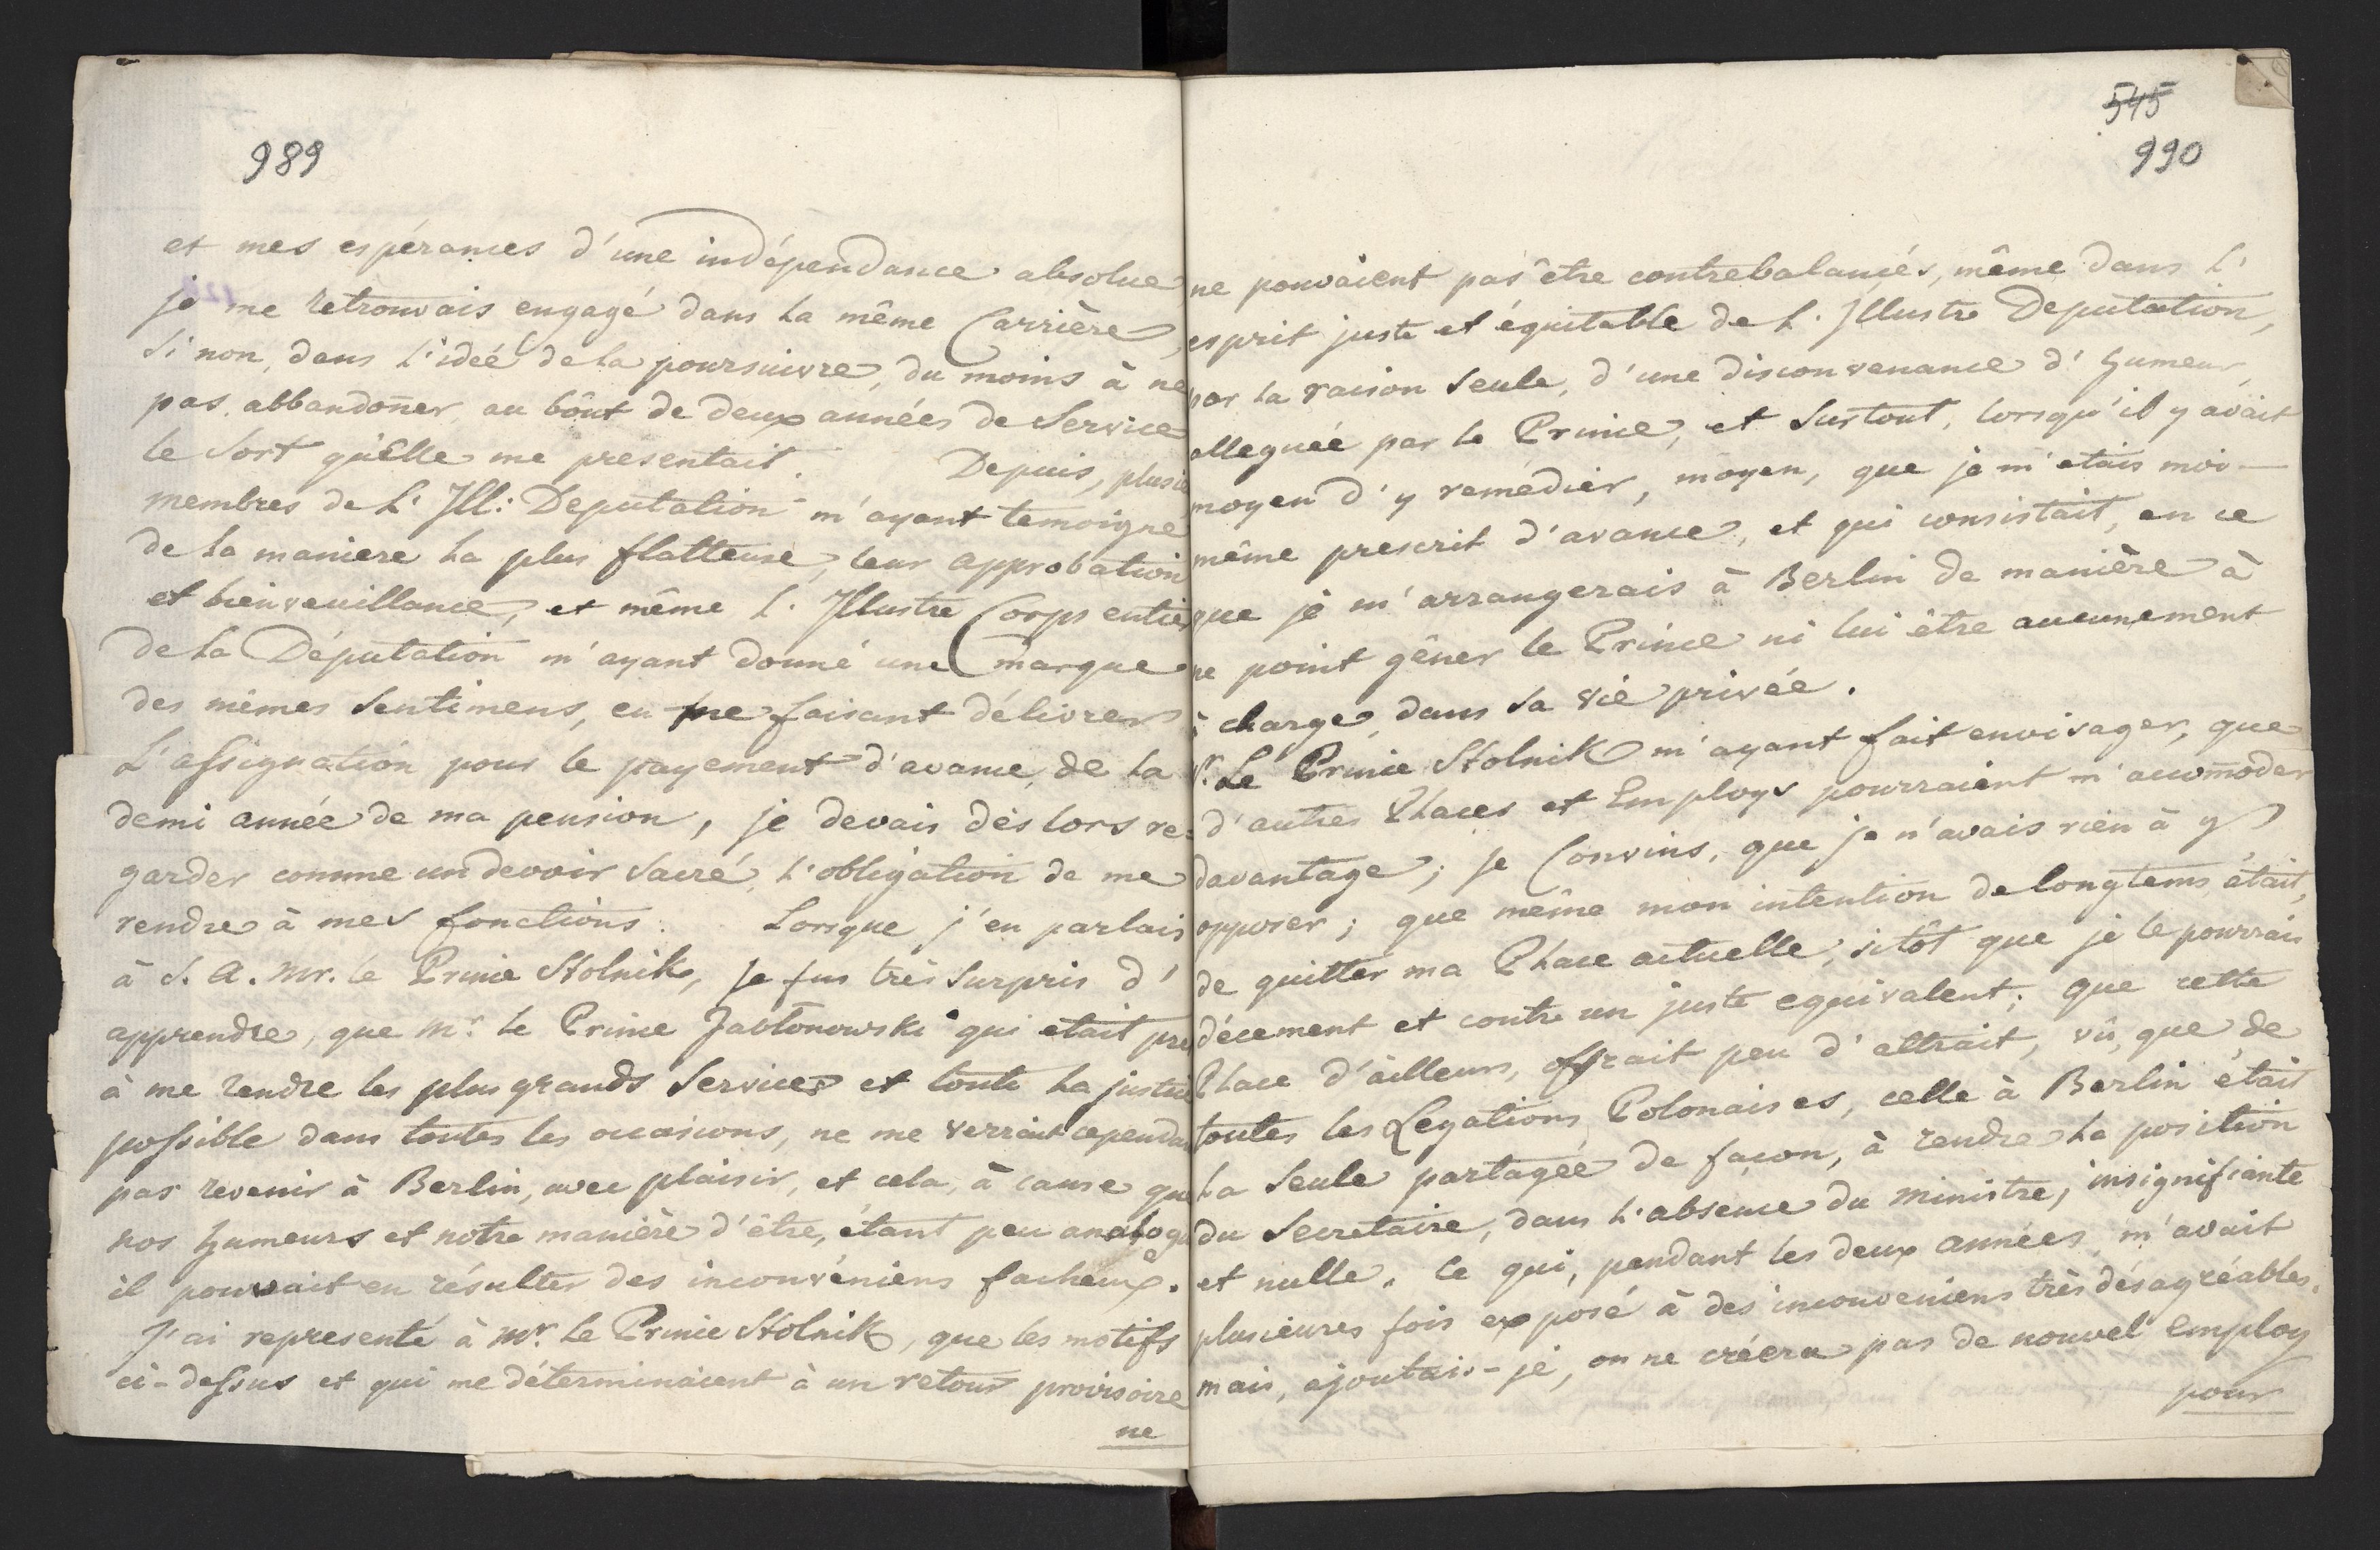 989
et mes espérances d'une indépendance absolue
je me retrouvais engagé dans la même Carrière,
si non, dans l'ideé de la poursuivre, du moins à ne
pas abbandoñer au bôut de deux années de Service
le sort qu'Elle me presentait. Depuis, plusie
membres de L' Ill: Deputation m'ayant temoigne
de la maniere la plus flatteuse, leur approbation
et bienveuillance, et même L. Illustre Corps entier
de la Députation m'ayant donné une marque
des mêmes Sentimens, en me faisant délivrer
L'assignation pour le payement d'avance, de la
demi année de ma pension, je devais dès lors re=
garder comme un devoir sacré, l'obligation de me
rendre à mes fonctions. Lorsque j'en parlais
à S. A. Mr. le Prince Stolnik, je fus très surpris d'
apprendre, que Mr. le Prince Jabłonowski qui etait pret
à me rendre les plus grands Services et toute la justice
possible dans toutes les occasions, ne me verrait cependan
pas revenir à Berlin, avec plaisir, et cela, à cause que
nos humeurs et notre manière d'être, étant peu analogu
il pouvait en résulter des inconvéniens facheux.
J'ai representé à Mr. Le Prince Stolnik, que les motifs
ci-dessus et qui me déterminaient à un retour provisoire
ne
545
990
ne pouvaient pas être contrebalancés, même dans L'
esprit juste et équitable de L. Illustre Deputation,
par la raison seule, d'une disconvenance d'humeur,
alleguée par le Prince, et surtout, lorsqu'il y avait
moyen d'y remédier, moyen, que je m'etais moi-
même prescrit d'avance, et qui consistait, en ce
que je m'arrangerais à Berlin de manière à
ne point gêner le Prince ni lui être aucunement
à charge, dans sa vie privée.
Mr. Le Prince Stolnik m'ayant fait envisager, que
d'autres Places et Employs pourraient m'accom̄oder
davantage; je Convins, que je n'avais rien à y
opposer; que même mon intention de longtems était,
de quitter ma Place actuelle, sitôt que je le pourrais
décement et contre un juste equivalent; que cette
Place d'ailleurs, offrait peu d'attrait, vû, que de
toutes les Legations Polonaises, celle à Berlin était
la seule partagée de façon, à rendre la position
du Secretaire, dans l'absence du Ministre, insignifiante
et nulle. Ce qui, pendant les deux années, m'avait
plusieures fois exposé à des inconveniens très désagréables,
mais, ajoutais-je, on ne créera pas de nouvel employ
pour